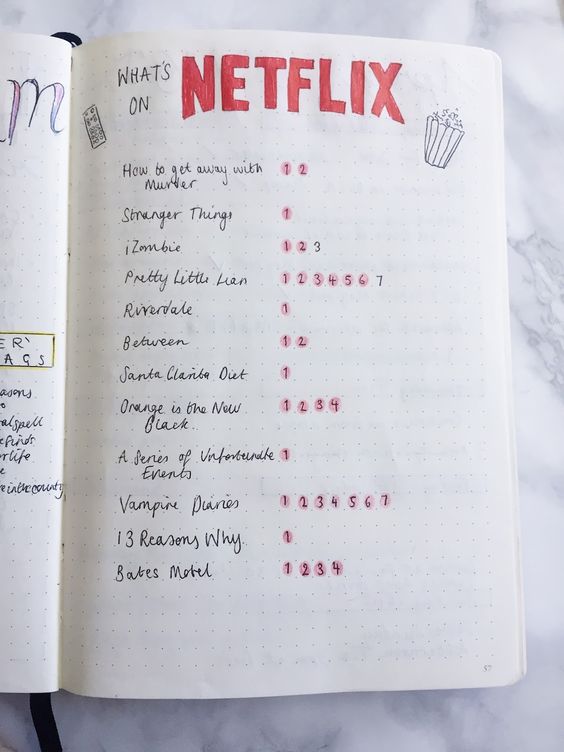 m
ER'
AGS
asons
alspell
rlife
e
einthecounty
WHAT'S
ON
NETFLIX
How to get away with
Murder
1 2
Stranger Things 1
iZombie 1 2 3
Pretty Little Liars 1 2 3 4 5 6 7
Riverdale 1
Between 1 2
Santa Clarita Diet 1
Orange is the New
Black. 1 2 3 4
A Series of Unfortunate
Events 1
Vampire Diaries 1 2 3 4 5 6 7
13 Reasons Why. 1
Bates Motel 1 2 3 4
57